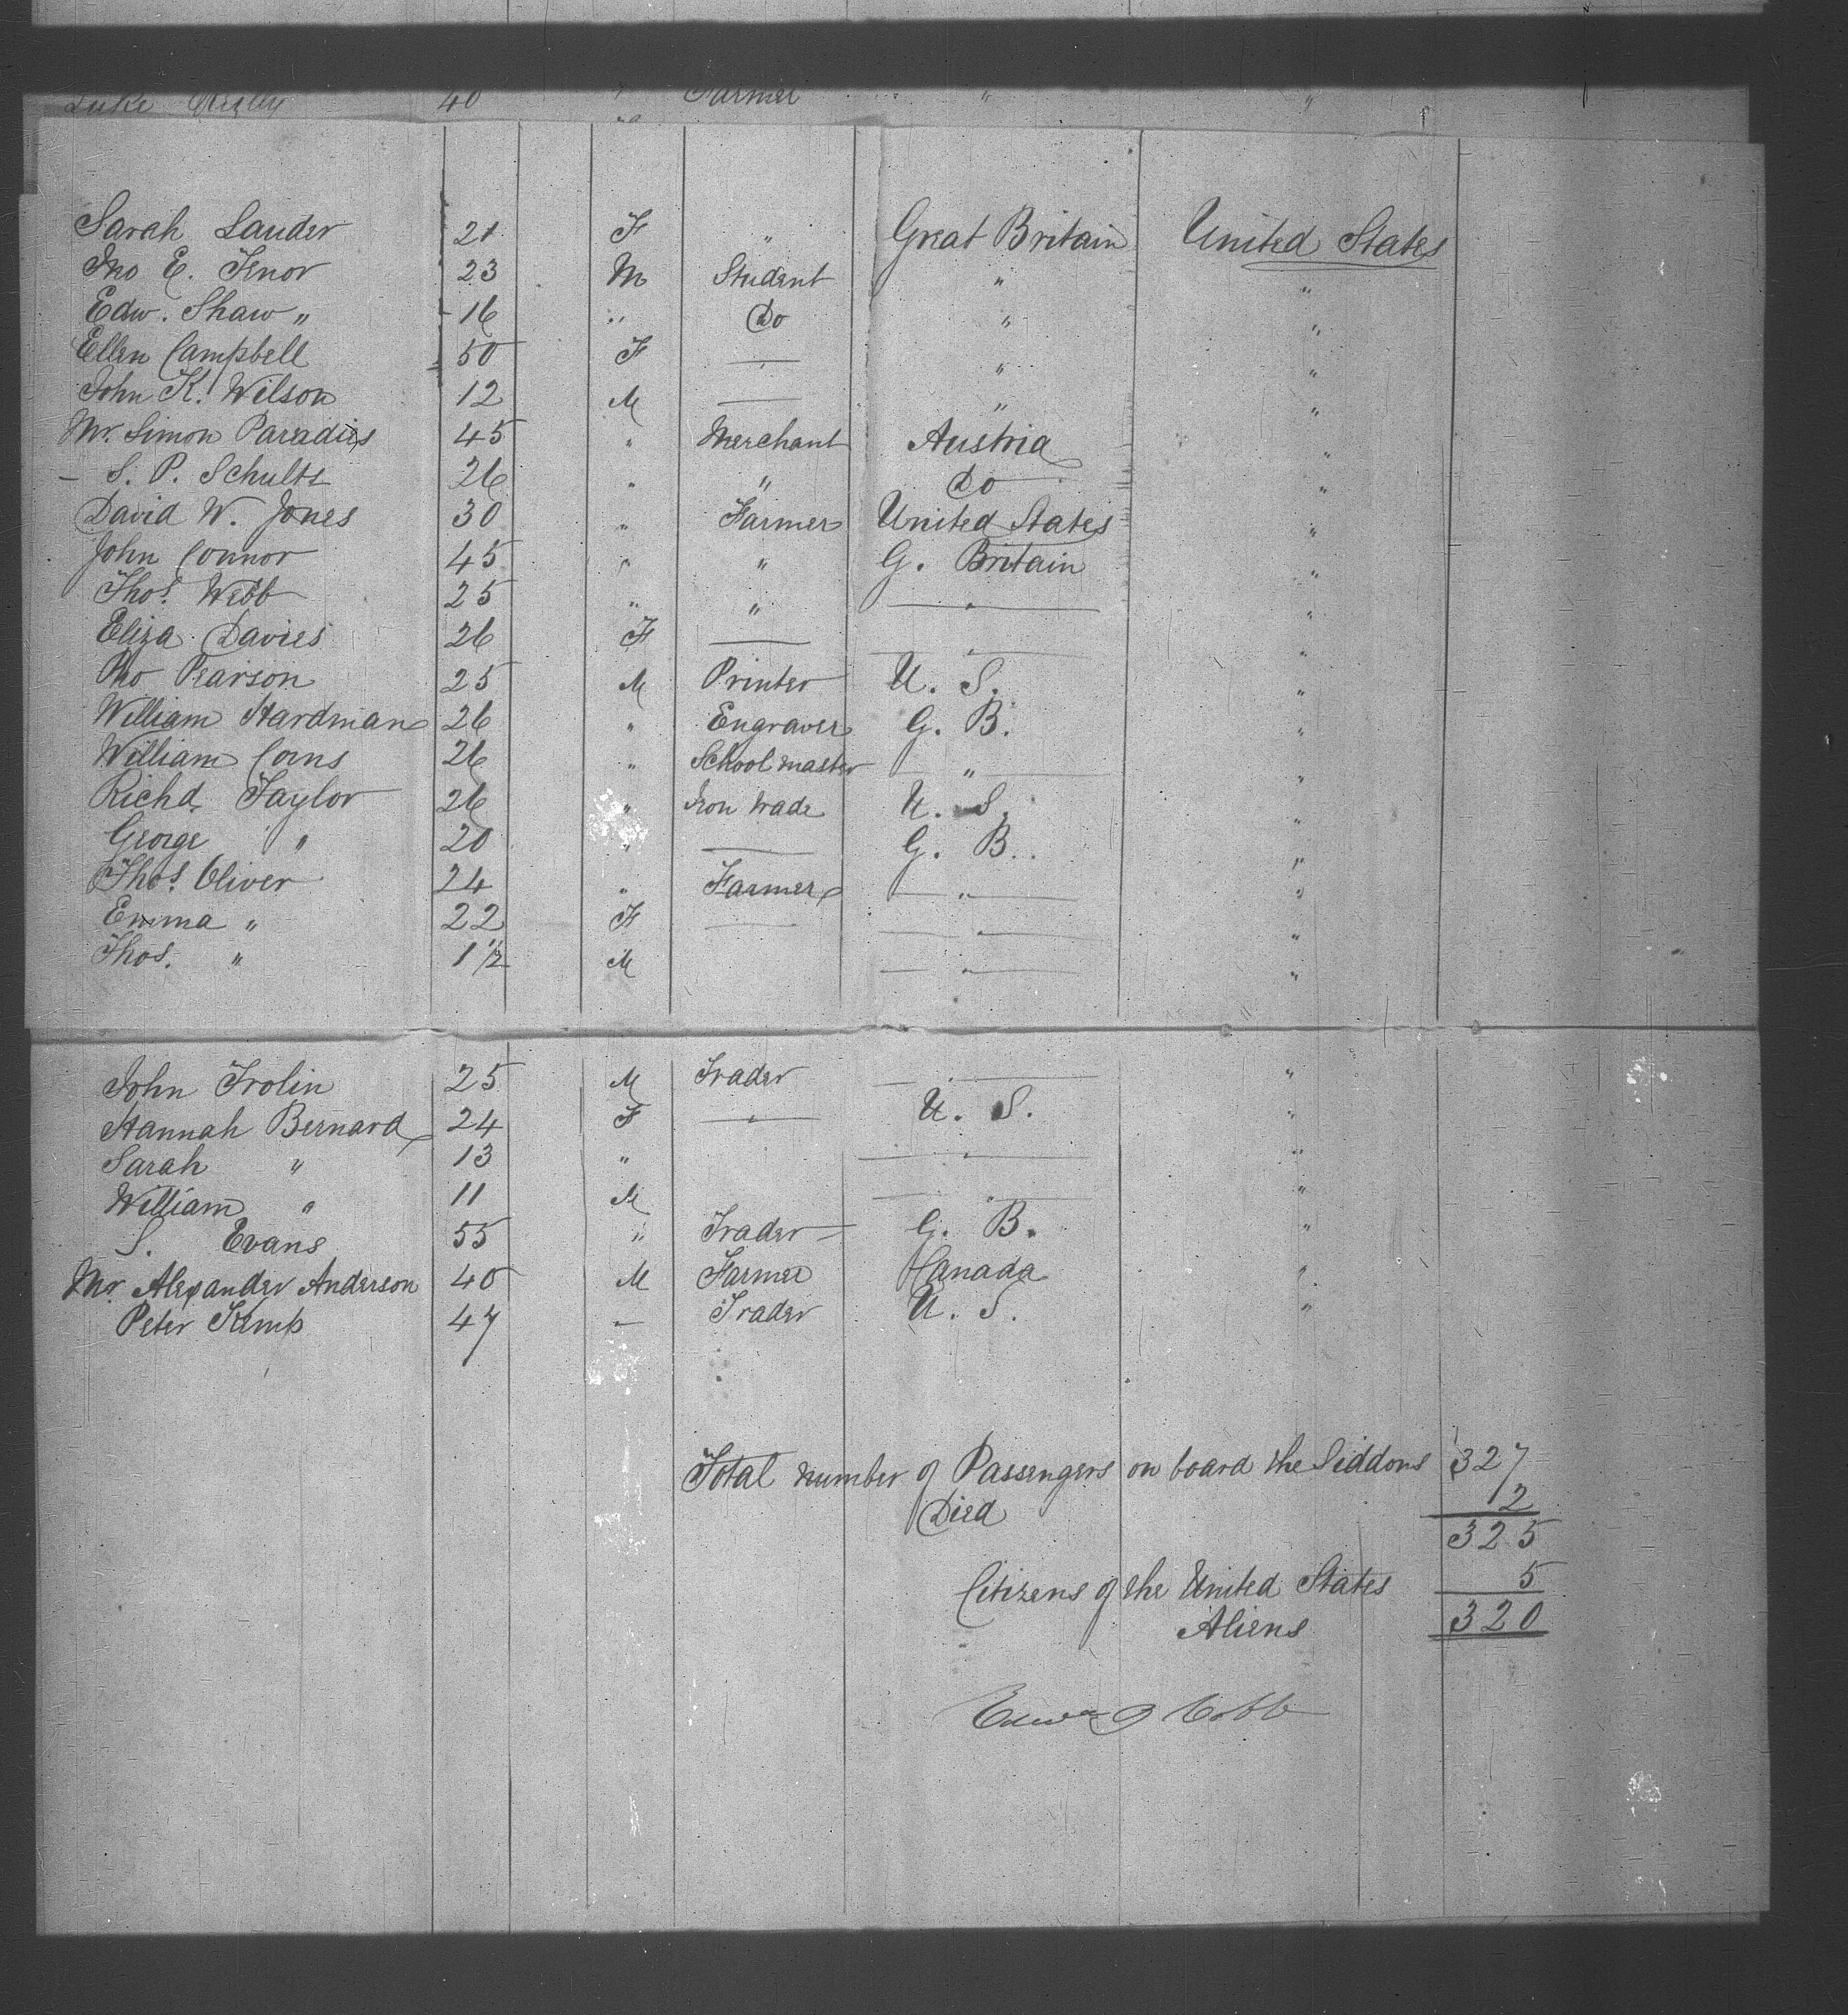 Luke Reilly 40 " Farmer " "
Sarah Lauder 21 F " Great Britain United States
Jno E. Tenor 23 M Student " "
Edw. Shaw " 16 " Do " "
Ellen Campbell 50 F — " "
John K. Wilson 12 M — " "
Mr. Simon Paradies 45 " Merchant Austria "
— S. P. Schults 26 " " Do "
David W. Jones 30 " Farmer United States "
John Connor 45 " " G. Britain "
Thos. Webb 25 " " — " — "
Eliza Davies 26 F — — " — "
Tho Pearson 25 M Printer U. S. "
William Hardman 26 " Engraver G. B. "
William Corns 26 " School master — " — "
Richd Taylor 26 " Iron trade U. S. "
George " 20 " — G. B. "
Thos. Oliver 24 " Farmer — " — "
Emma " 22 F — — " — "
Thos. " 1 1/2 M — " — "
John Trolin 25 M Trader — " — "
Hannah Bernard 24 F — " — U. S. "
Sarah " 13 " — " — "
William " 11 M — " — "
S. Evans 55 " Trader — G. B. "
Mr. Alexander Anderson 40 M Farmer Canada "
Peter Kemp 47 — Trader U. S. "
Total number of Passengers on board the Siddons 327
Died 2
325
Citizens of the United States 5
Aliens 320
Cobb